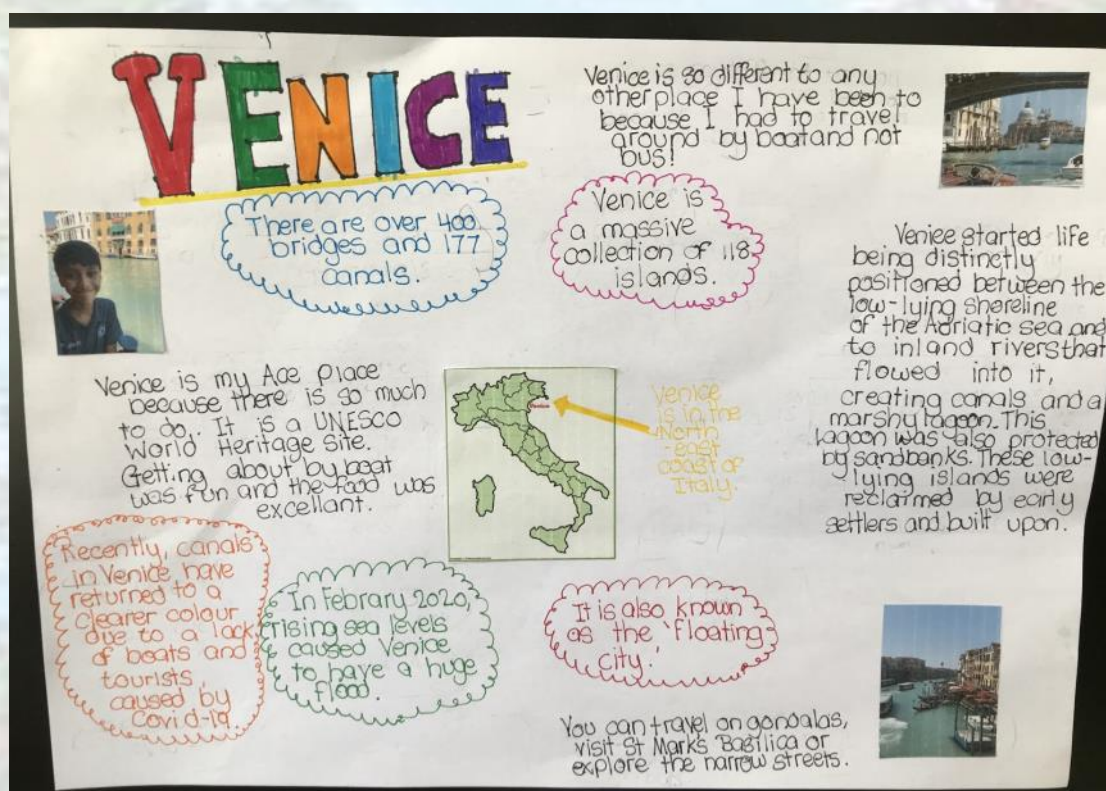 VENICE
Venice is so different to any
other place I have been to
because I had to travel
around by boat and not
bus!
There are over 400
bridges and 177
canals.
Venice is
a massive
collection of 118
islands.
Venice started life
being distinctly
positioned between the
low-lying shoreline
of the Adriatic sea and
to inland rivers that
flowed into it,
creating canals and a
marshy lagoon. This
lagoon was also protected
by sandbanks. These low-
lying islands were
reclaimed by early
settlers and built upon.
Venice is my Ace Place
because there is so much
to do. It is a UNESCO
World Heritage Site.
Getting about by boat
was fun and the food was
excellent.
Venice
is in the
North
-east
coast of
Italy.
Recently, canals
in Venice have
returned to a
clearer colour
due to a lack
of boats and
tourists,
caused by
Covid-19
In Febrary 2020,
rising sea levels
caused Venice
to have a huge
flood.
It is also known
as the 'floating
city.'
You can travel on gondalas,
visit St Mark's Basilica or
explore the narrow streets.